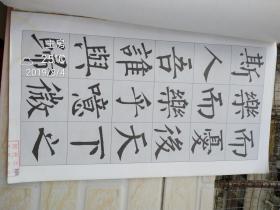 而憂後天下之
樂而樂乎噫微
斯人吾誰與歸
2019/9/4